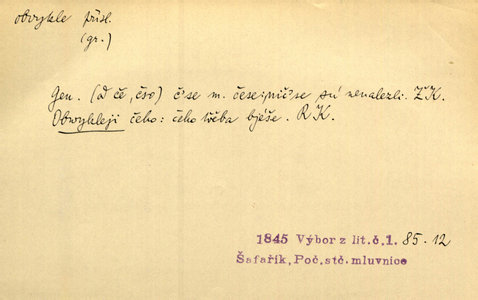 obvykle přísl.
(gr.)
Gen. (č če, čso) čse m. čese; ničse sú nenalezli. ŽK.
Obvykleji čeho: čeho třěba bjéše. RK.
1845 Výbor z lit.č,1. 85.12
Šafařík,Poč,stč.mluvnice